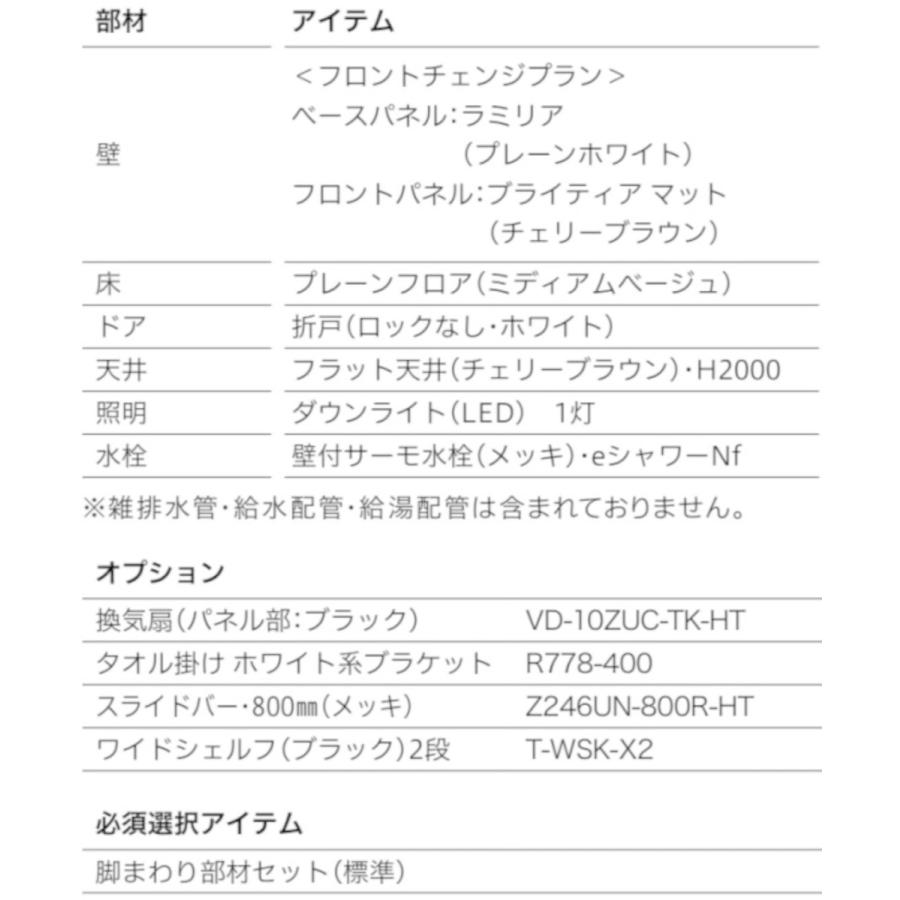 部材 アイテム
＜フロントチェンジプラン＞
ベースパネル：ラミリア
壁 （プレーンホワイト）
フロントパネル：ブライティア マット
（チェリーブラウン）
床 プレーンフロア（ミディアムベージュ）
ドア 折戸（ロックなし・ホワイト）
天井 フラット天井（チェリーブラウン）・H2000
照明 ダウンライト（LED） 1灯
水栓 壁付サーモ水栓（メッキ）・eシャワーNf
※雑排水管・給水配管・給湯配管は含まれておりません。
オプション
換気扇（パネル部：ブラック） VD-10ZUC-TK-HT
タオル掛け ホワイト系ブラケット R778-400
スライドバー・800㎜（メッキ） Z246UN-800R-HT
ワイドシェルフ（ブラック）2段 T-WSK-X2
必須選択アイテム
脚まわり部材セット（標準）